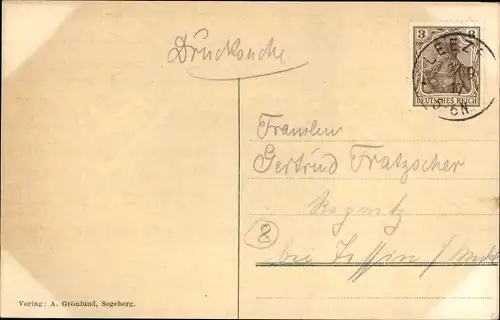 Drucksache
3 3
LEEZ
DEUTSCHES REICH
Fräulein
Gertrud Fratzscher
8
bei
Verlag: A. Grönlund, Segeberg.